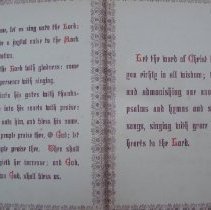 me, let us sing unto the Lord:
a joyful noise to the Rock
the Lord with gladness: come
presence with singing.
into his gates with thanks-
into his courts with praise:
unto him, and bless his name.
people praise thee, O God; let
people praise thee. Then shall
yield her increase; and God,
God, shall bless us.
Let the word of Christ
you richly in all wisdom;
and admonishing one
psalms and hymns and
songs, singing with grace
hearts to the Lord.